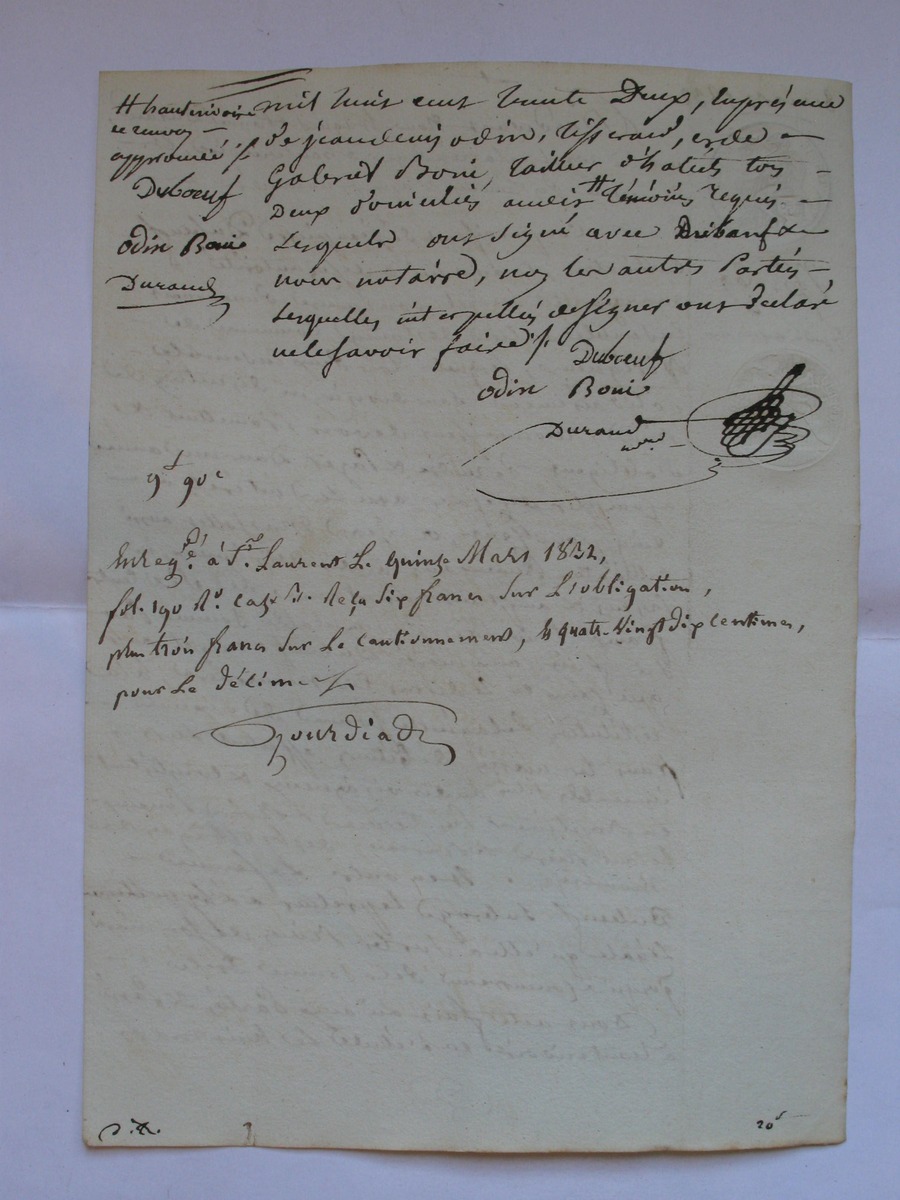 # hauterivoire
ce renvoy
approuvé ./.
Dubœuf
odin Boni
Durand
mil huit cent trente Deux, En présence
De jean denis odin, tisserand, et de
Gabriel Boni, tailleur d'habits tous
Deux domiciliés audit # témoins requis
Lesquels ont signé avec Dubœuf &
nous notaire, non les autres Parties
Lesquelles interpellées de signer ont déclaré
ne le savoir faire ./.
Dubœuf
odin Boni
Durand
9f 90c
Enregé. à St. Laurent Le quinze Mars 1832,
fol. 190 Ro. Case Reçu six francs sur L'obligation,
plus trois francs sur Le cautionnement, & quatre-vingt dix centimes,
pour Le décime
Gourdiad